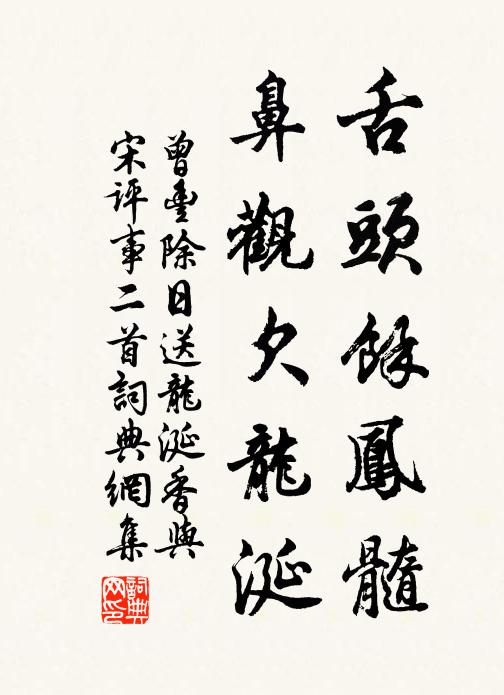 舌頭餘鳳髓
鼻觀欠龍涎
曾豐除日送龍涎香與
宋評事二首詞典網集